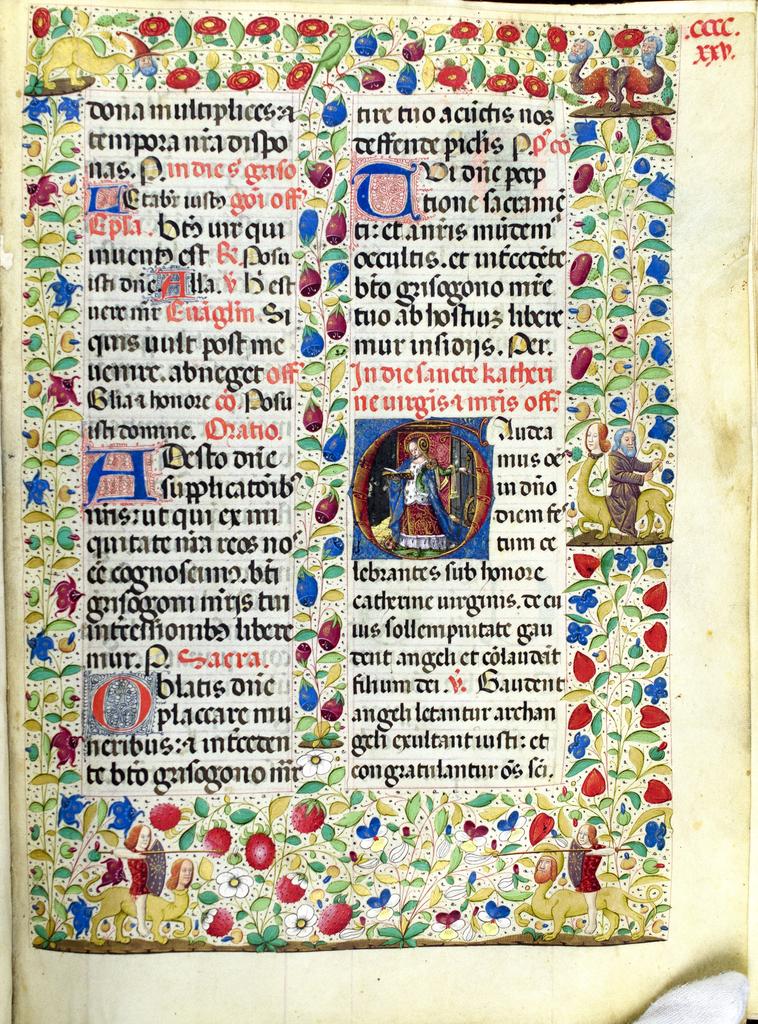 CCCC.
XXV.
dona multiplices: ⁊
tempora nr̄a dispo
nas. P. in die s̄ griso
Letabr̄ iustꝰ goī off̄
Ep̄la. Btūs uir qui
inuentꝰ est R̄. Posu
isti dn̄e Alla. v̄ h̄ est
uere mr̄ Euāgliū. Si
quis uult post me
uenire. abneget off̄
Gl̄ia ⁊ honore cō. Posu
isti domine. Oratio.
Adesto dn̄e
supplicatōibꝰ
nr̄is: ut qui ex ini
quitate nr̄a reos nos
eē cognoscimꝰ. bt̄i
grisogoni mr̄is tui
int̄cessionibꝰ libere
mur. P. Sacra.
Oblatis dn̄e
placcare mu
neribus: ⁊ int̄ceden
te bt̄o grisogono mr̄
tire tuo a cūctis nos
deffende piclis P. P. cō
Tui dn̄e ꝑcep
tione sacramē
ti: et a nr̄is mūdem
occultis. et int̄cedēte
bt̄o grisogono mr̄e
tuo ab hostiūꝫ libere
mur insidijs. Per.
In die sancte katheri
ne uirgis ⁊ mr̄is off̄.
Gaudea
mus oē
in dn̄o
diem fe
tum ce
lebrantes sub honore
catherine uirginis. de cu
ius sollempnitate gau
dent angeli et cōlaudāt
filium dei. v̄. Gaudent
angeli letantur archan
geli exultant iusti: et
congratulantur ōs sc̄i.